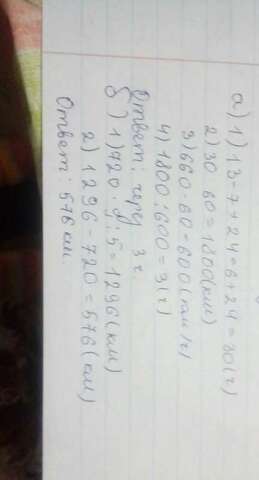 а) 1) 13-7+24=6+24=30(г)
2) 30 60=1800(км)
3) 660-60=600(км/г)
4) 1800:600=3(г)
Ответ: через 3 г.
б) 1) 720·9:5=1296(км)
2) 1296-720=576(км)
Ответ: 576 км.